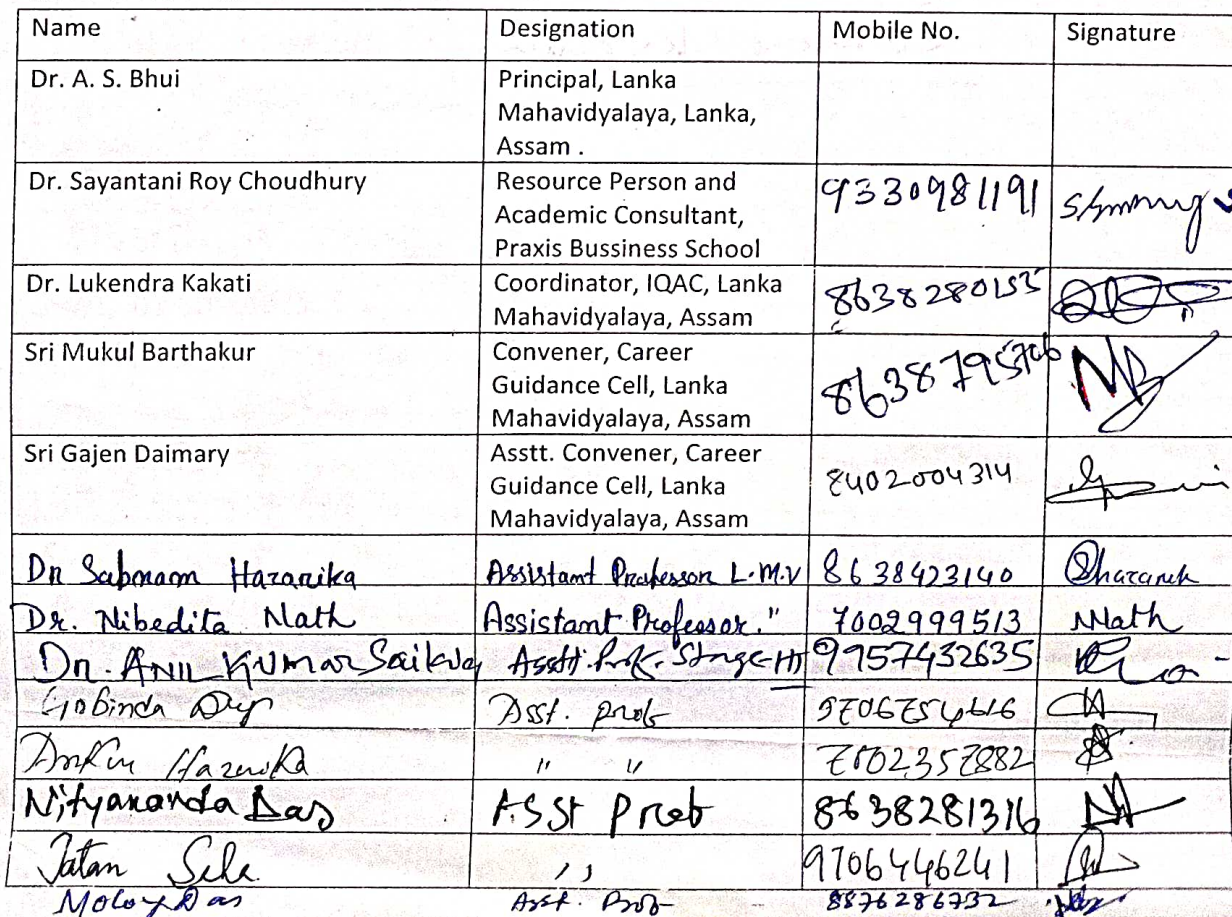 Name Designation Mobile No. Signature
Dr. A. S. Bhui Principal, Lanka
Mahavidyalaya, Lanka,
Assam .
Dr. Sayantani Roy Choudhury Resource Person and 9330981191
Academic Consultant,
Praxis Bussiness School
Dr. Lukendra Kakati Coordinator, IQAC, Lanka 8638280153
Mahavidyalaya, Assam
Sri Mukul Barthakur Convener, Career 8638795706 MB
Guidance Cell, Lanka
Mahavidyalaya, Assam
Sri Gajen Daimary Asstt. Convener, Career 8402004314
Guidance Cell, Lanka
Mahavidyalaya, Assam
Dr Sabnam Hazarika Assistant Professor L.M.V 8638423140 Shazarik
Dr. Nibedita Nath Assistant Professor. " 7002999513 Nath
Dr. ANIL KUMAR Saikia Asstt. Prof. Stage-III 9957432635
Gobinda Asst. Prof
Hazarika " " 7002357882
Nityananda Das Asst Prof 8638281316
Jatan ,, 9706446241
Moloy Das Asst. Prof 8876286732